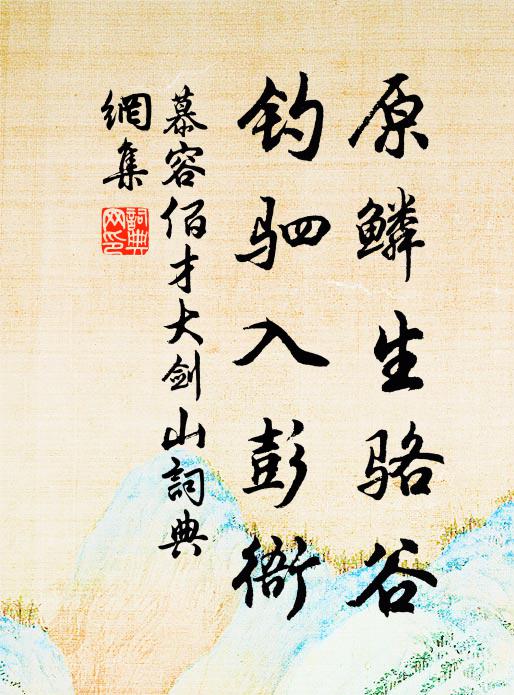 原鳞生骆谷
钓驷入彭衙
慕容佰才大剑山詞典
網集
詞典
网印